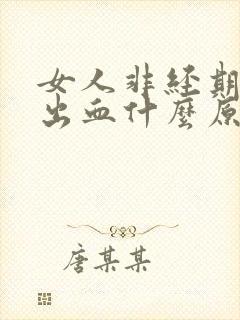 女人非经期
出血什麼原
唐某某